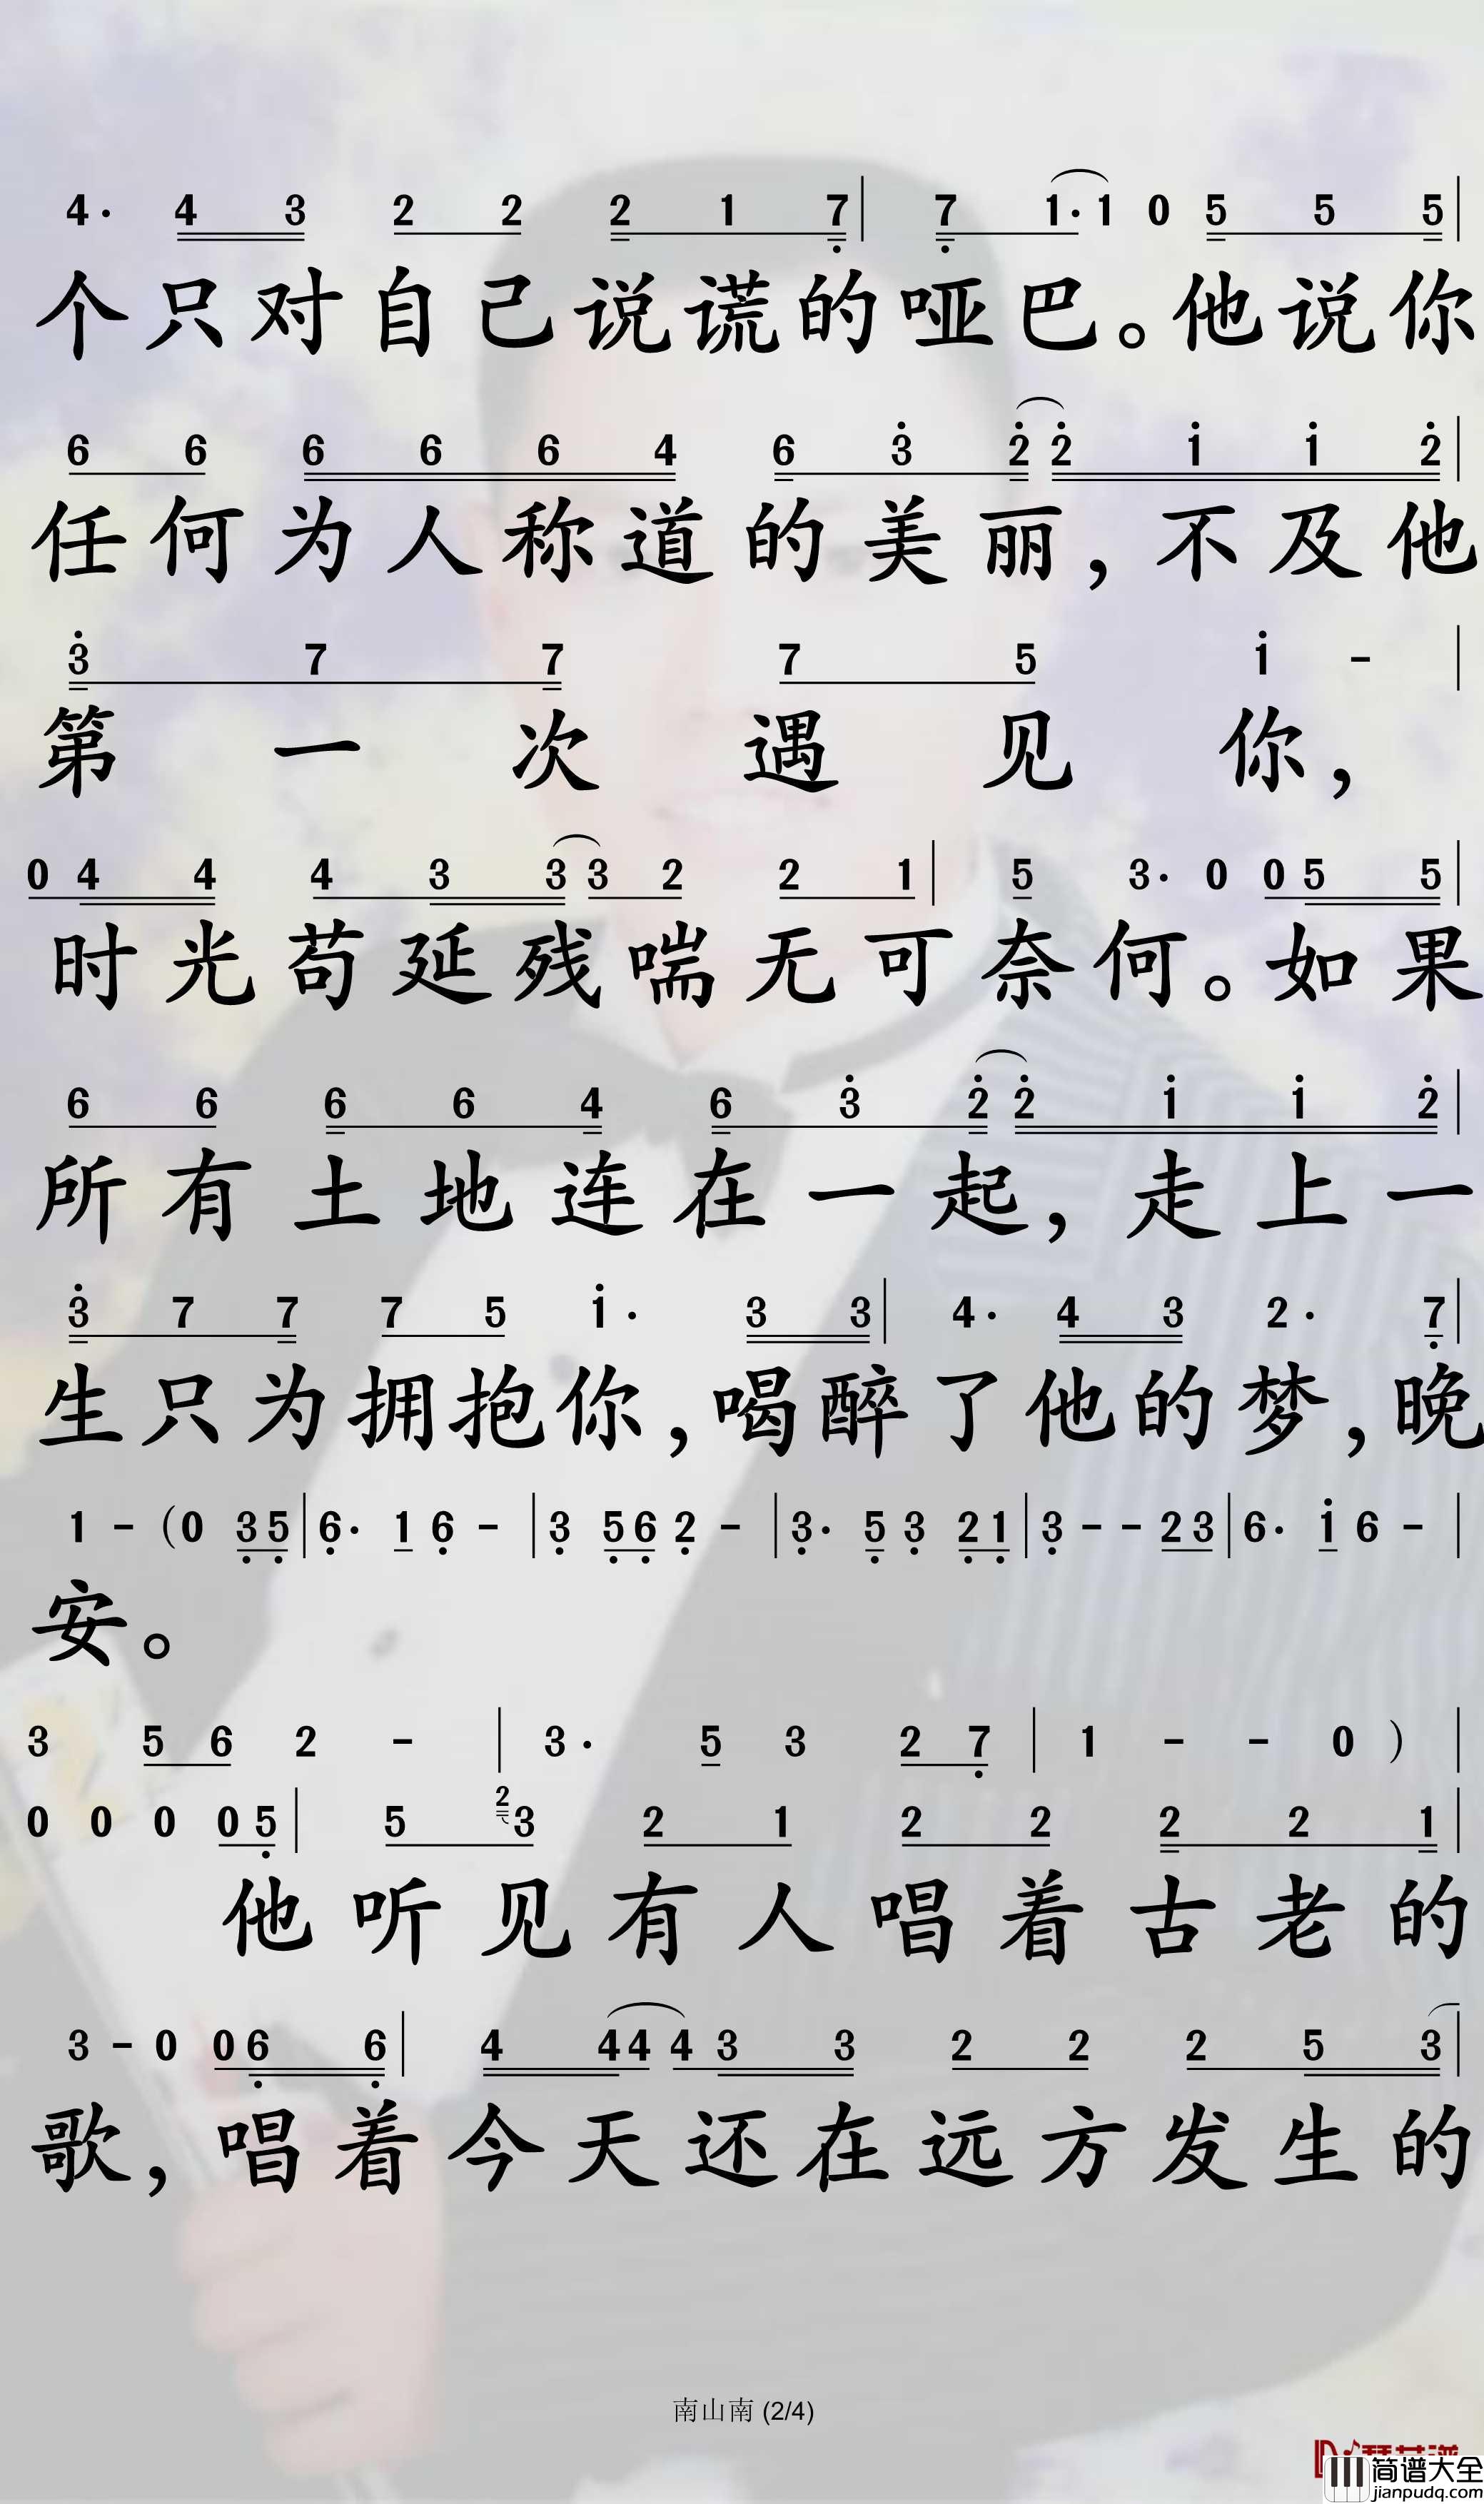 4· 4 3 2 2 2 1 7̣ | 7̣ 1·1 0 5 5 5 |
个只对自己说谎的哑巴。他说你
6 6 6 6 6 4 6 3̇ 2̇ 2̇ 1̇ 1̇ 2̇ |
任何为人称道的美丽，不及他
3̇ 7 7 7 5 1̇ - |
第一次遇见你，
0 4 4 4 3 3 3 2 2 1 | 5 3· 0 0 5 5 |
时光苟延残喘无可奈何。如果
6 6 6 6 4 6 3̇ 2̇ 2̇ 1̇ 1̇ 2̇ |
所有土地连在一起，走上一
3̇ 7 7 7 5 1̇· 3 3 | 4· 4 3 2· 7̣ |
生只为拥抱你，喝醉了他的梦，晚
1 - (0 3̣ 5̣ | 6̣· 1 6̣ - | 3̣ 5̣ 6̣ 2̣ - | 3̣· 5̣ 3̣ 2̣ 1̣ | 3̣ - - 2 3 | 6· 1̇ 6 - |
安。
3 5 6 2 - | 3· 5 3 2 7̣ | 1 - - 0 ) |
0 0 0 0 5̣ | 5 2 3 2 1 2 2 2 2 1 |
他听见有人唱着古老的
3 - 0 0 6̣ 6̣ | 4 4 4 4 3 3 2 2 2 5 3 |
歌，唱着今天还在远方发生的
南山南 (2/4)
简谱大全
jianpudq.com